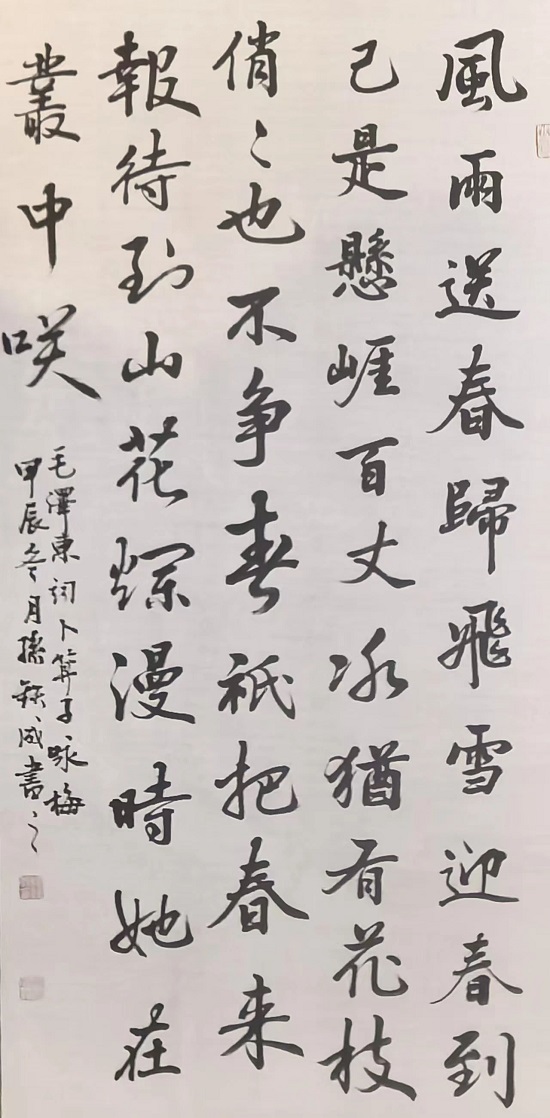 風雨送春歸飛雪迎春到
已是懸崕百丈冰猶有花枝
俏〻也不争春祇把春来
報待到山花爛漫時她在
叢中咲
毛澤東詞卜算子咏梅
甲辰冬月孫成書之